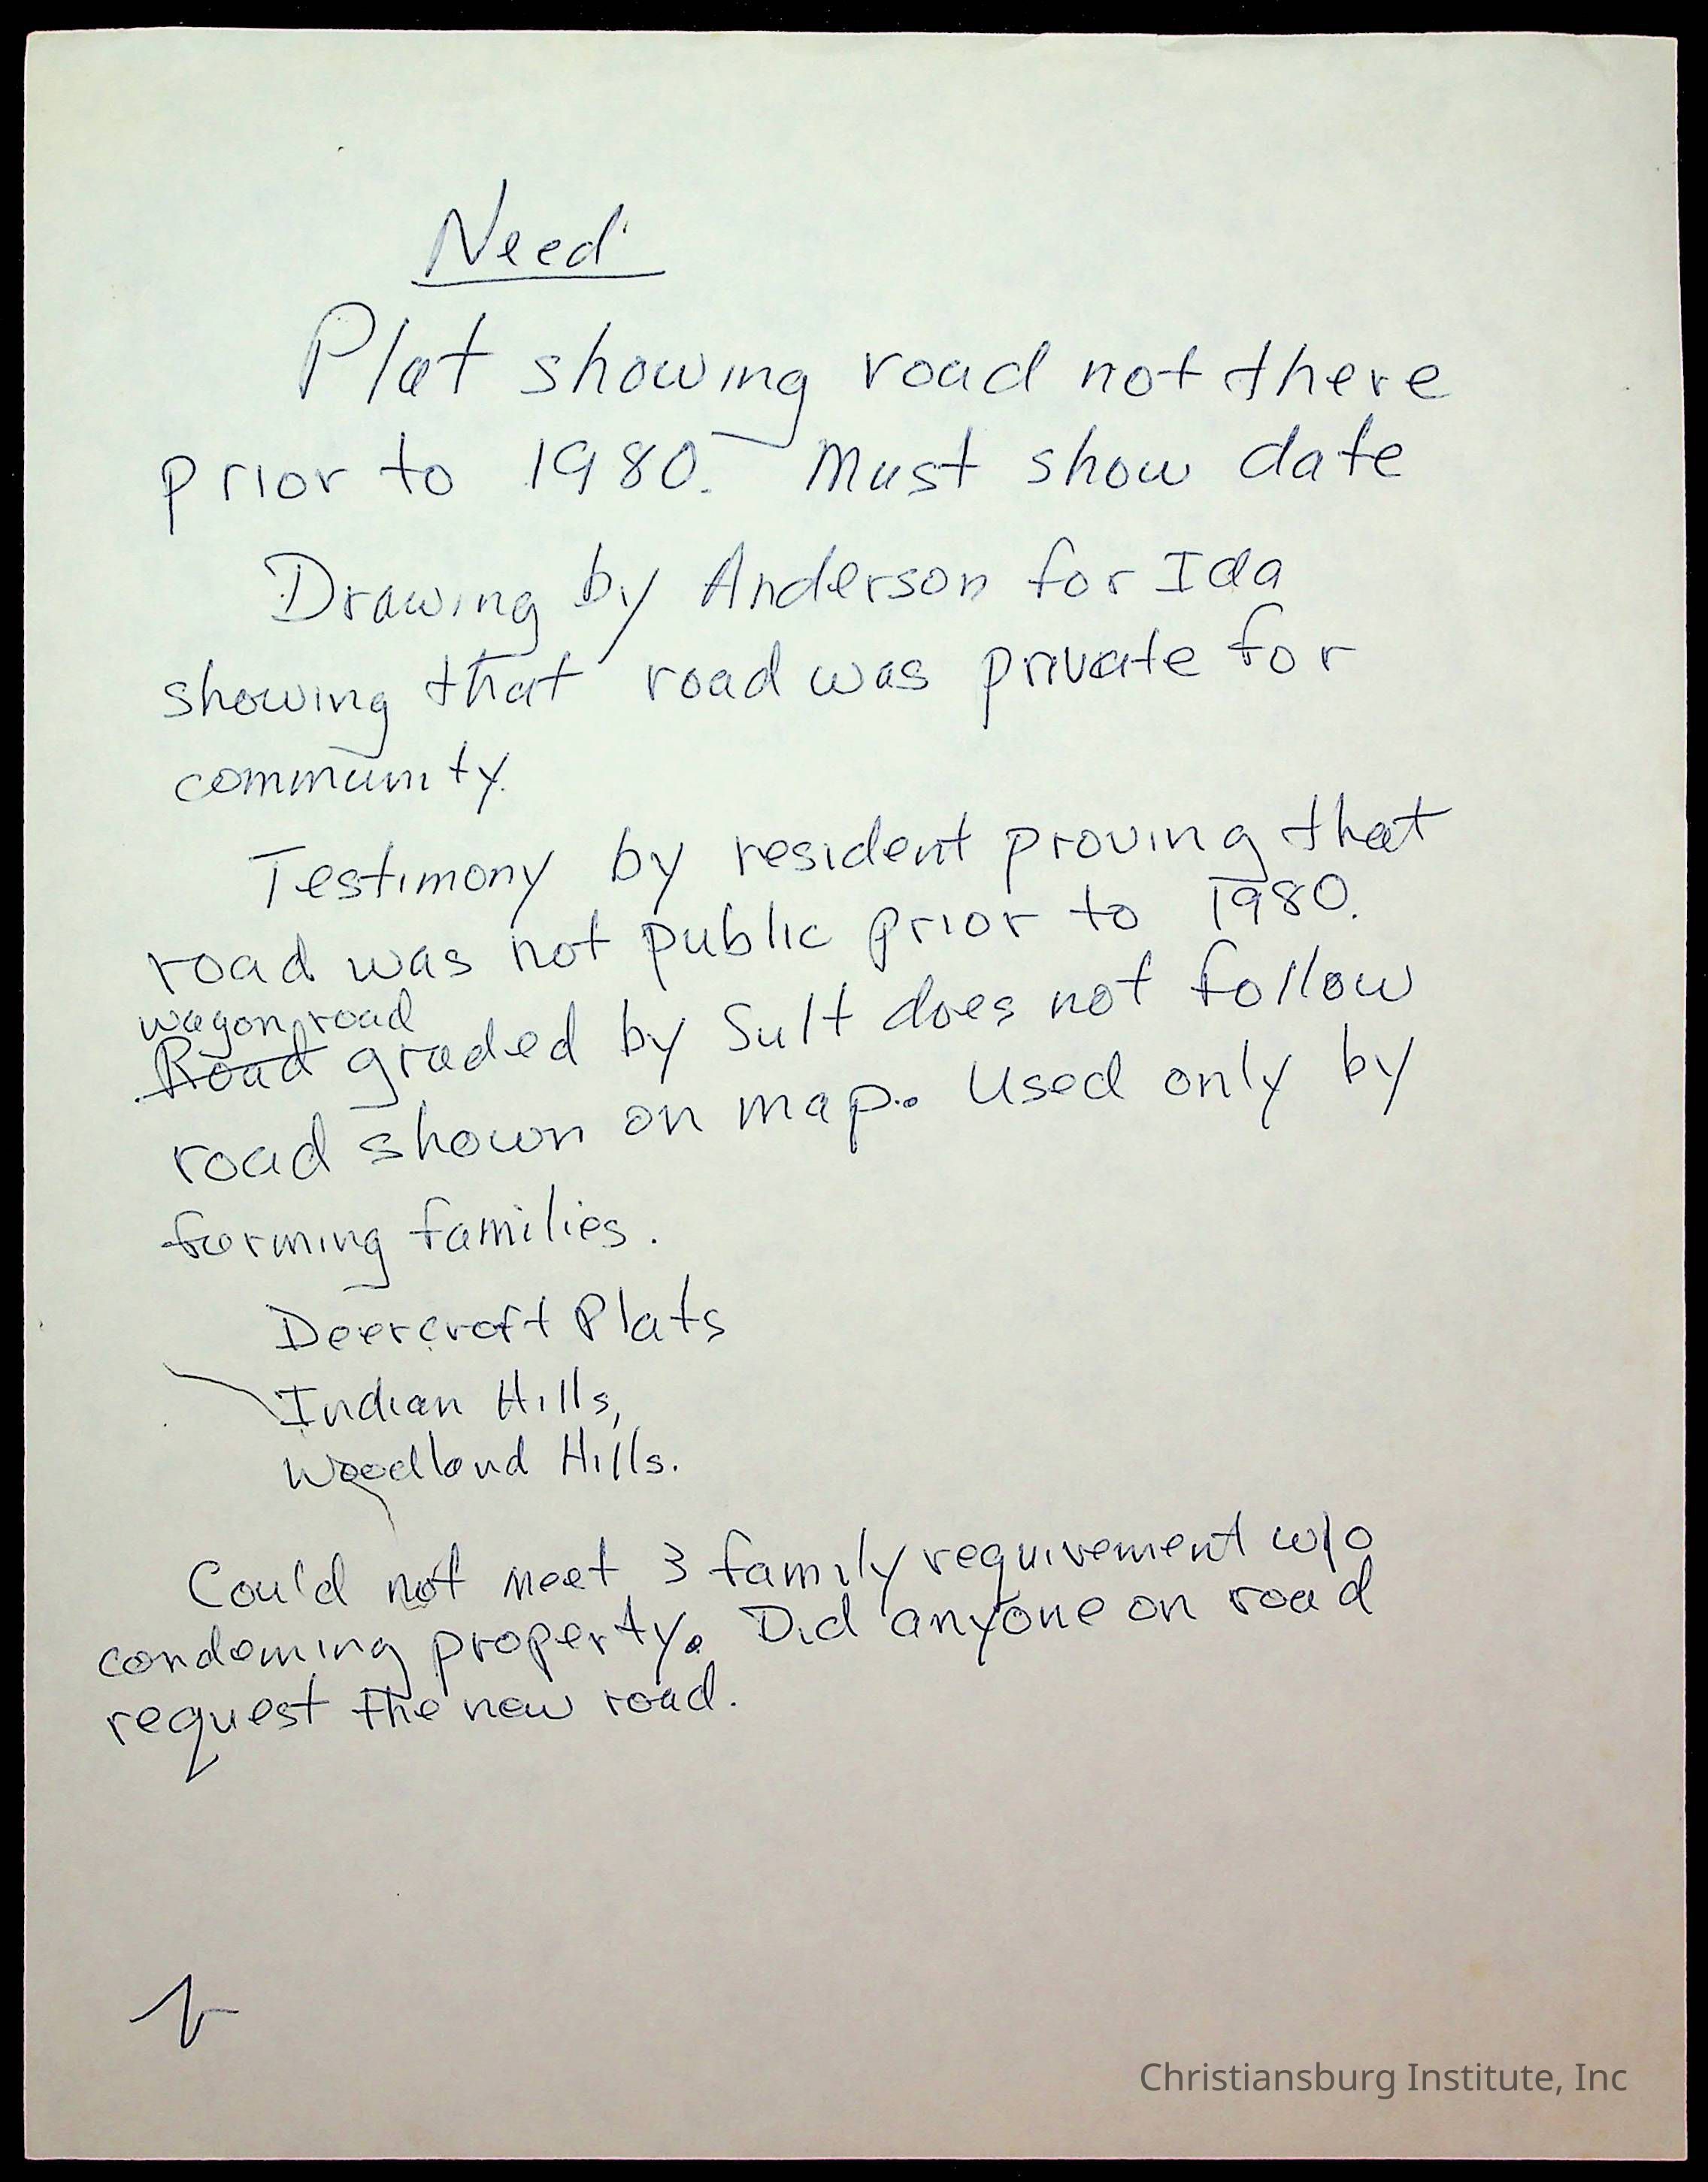 Need
Plat showing road not there
prior to 1980. Must show date
Drawing by Anderson for Ida
showing that road was private for
community.
Testimony by resident proving that
road was not public prior to 1980.
wagon road
Road graded by Sult does not follow
road shown on map. Used only by
farming families.
Deercroft Plats
Indian Hills,
Woodland Hills.
Could not meet 3 family requirement w/o
condeming property. Did anyone on road
request the new road.
Christiansburg Institute, Inc